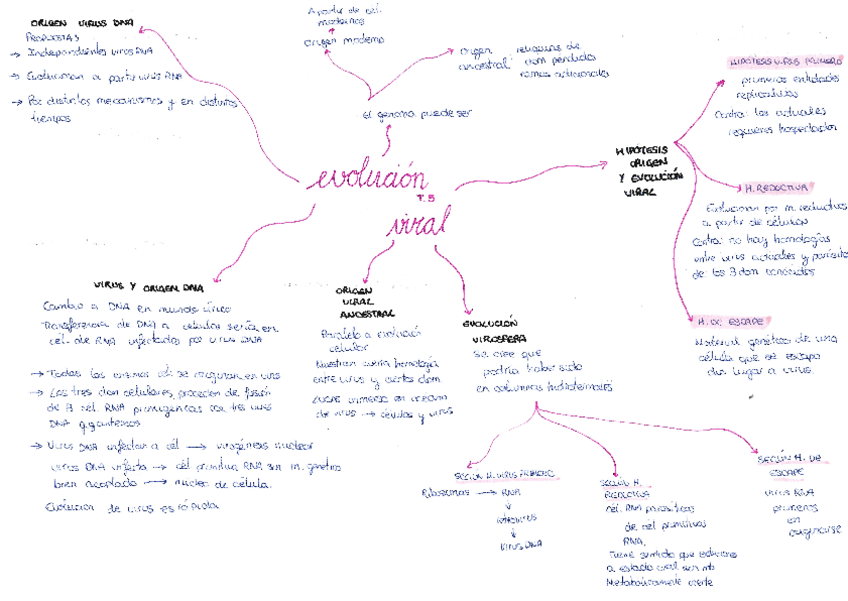 ORIGEN VIRUS DNA
PROPUESTAS
→ Independientes virus RNA
→ Evolucionan a partir virus RNA
→ Por distintos mecanismos y en distintos
tiempos
A partir de cel.
modernas
Origen moderno
Origen
ancestral:
reliquias de
dom perdidos
ramas adicionales
El genoma puede ser
evolución
T. 5
viral
HIPÓTESIS
ORIGEN
Y EVOLUCIÓN
VIRAL
HIPÓTESIS VIRUS PRIMERO
primeras entidades
replicativas
Contra: los actuales
requieren hospedador
H. REDUCTIVA
Evolucionan por m. reductivos
a partir de células
Contra: no hay homologías
entre virus actuales y parásitos
de los 3 dom conocidos
H. DE ESCAPE
Material genético de una
célula que se escapa
dan lugar a virus.
VIRUS Y ORIGEN DNA
Cambio a DNA en mundo vírico
Transferencia de DNA a células sería en
cél. de RNA infectadas por virus DNA
→ Todas las
→ Los tres dom celulares, proceden de fusión
de 3 cel. RNA primigenias con tres virus
DNA gigantescos
→ Virus DNA infectan a cél → virogénesis nuclear
virus DNA infecta → cél primitiva RNA sin m. genético
bien acoplado → núcleo de célula.
Evolución de virus es rápida
ORIGEN
VIRAL
ANCESTRAL
Paralelo a evolución
celular
Muestran cierta homología
entre virus y ciertos dom
LUCAS inmerso en
de virus → células y virus
EVOLUCIÓN
VIROSFERA
Se cree que
podría haber sido
en columnas hidrotermales
SEGÚN H. VIRUS PRIMERO
Ribosomas → RNA
↓
retrovirus
↓
Virus DNA
SEGÚN H.
REDUCTIVA
cél. RNA parasíticas
de cel primitivas
RNA.
Tiene sentido que
a estado viral sin mb
Metabólicamente inerte
SEGÚN H. DE
ESCAPE
virus RNA
primeros
en
originarse